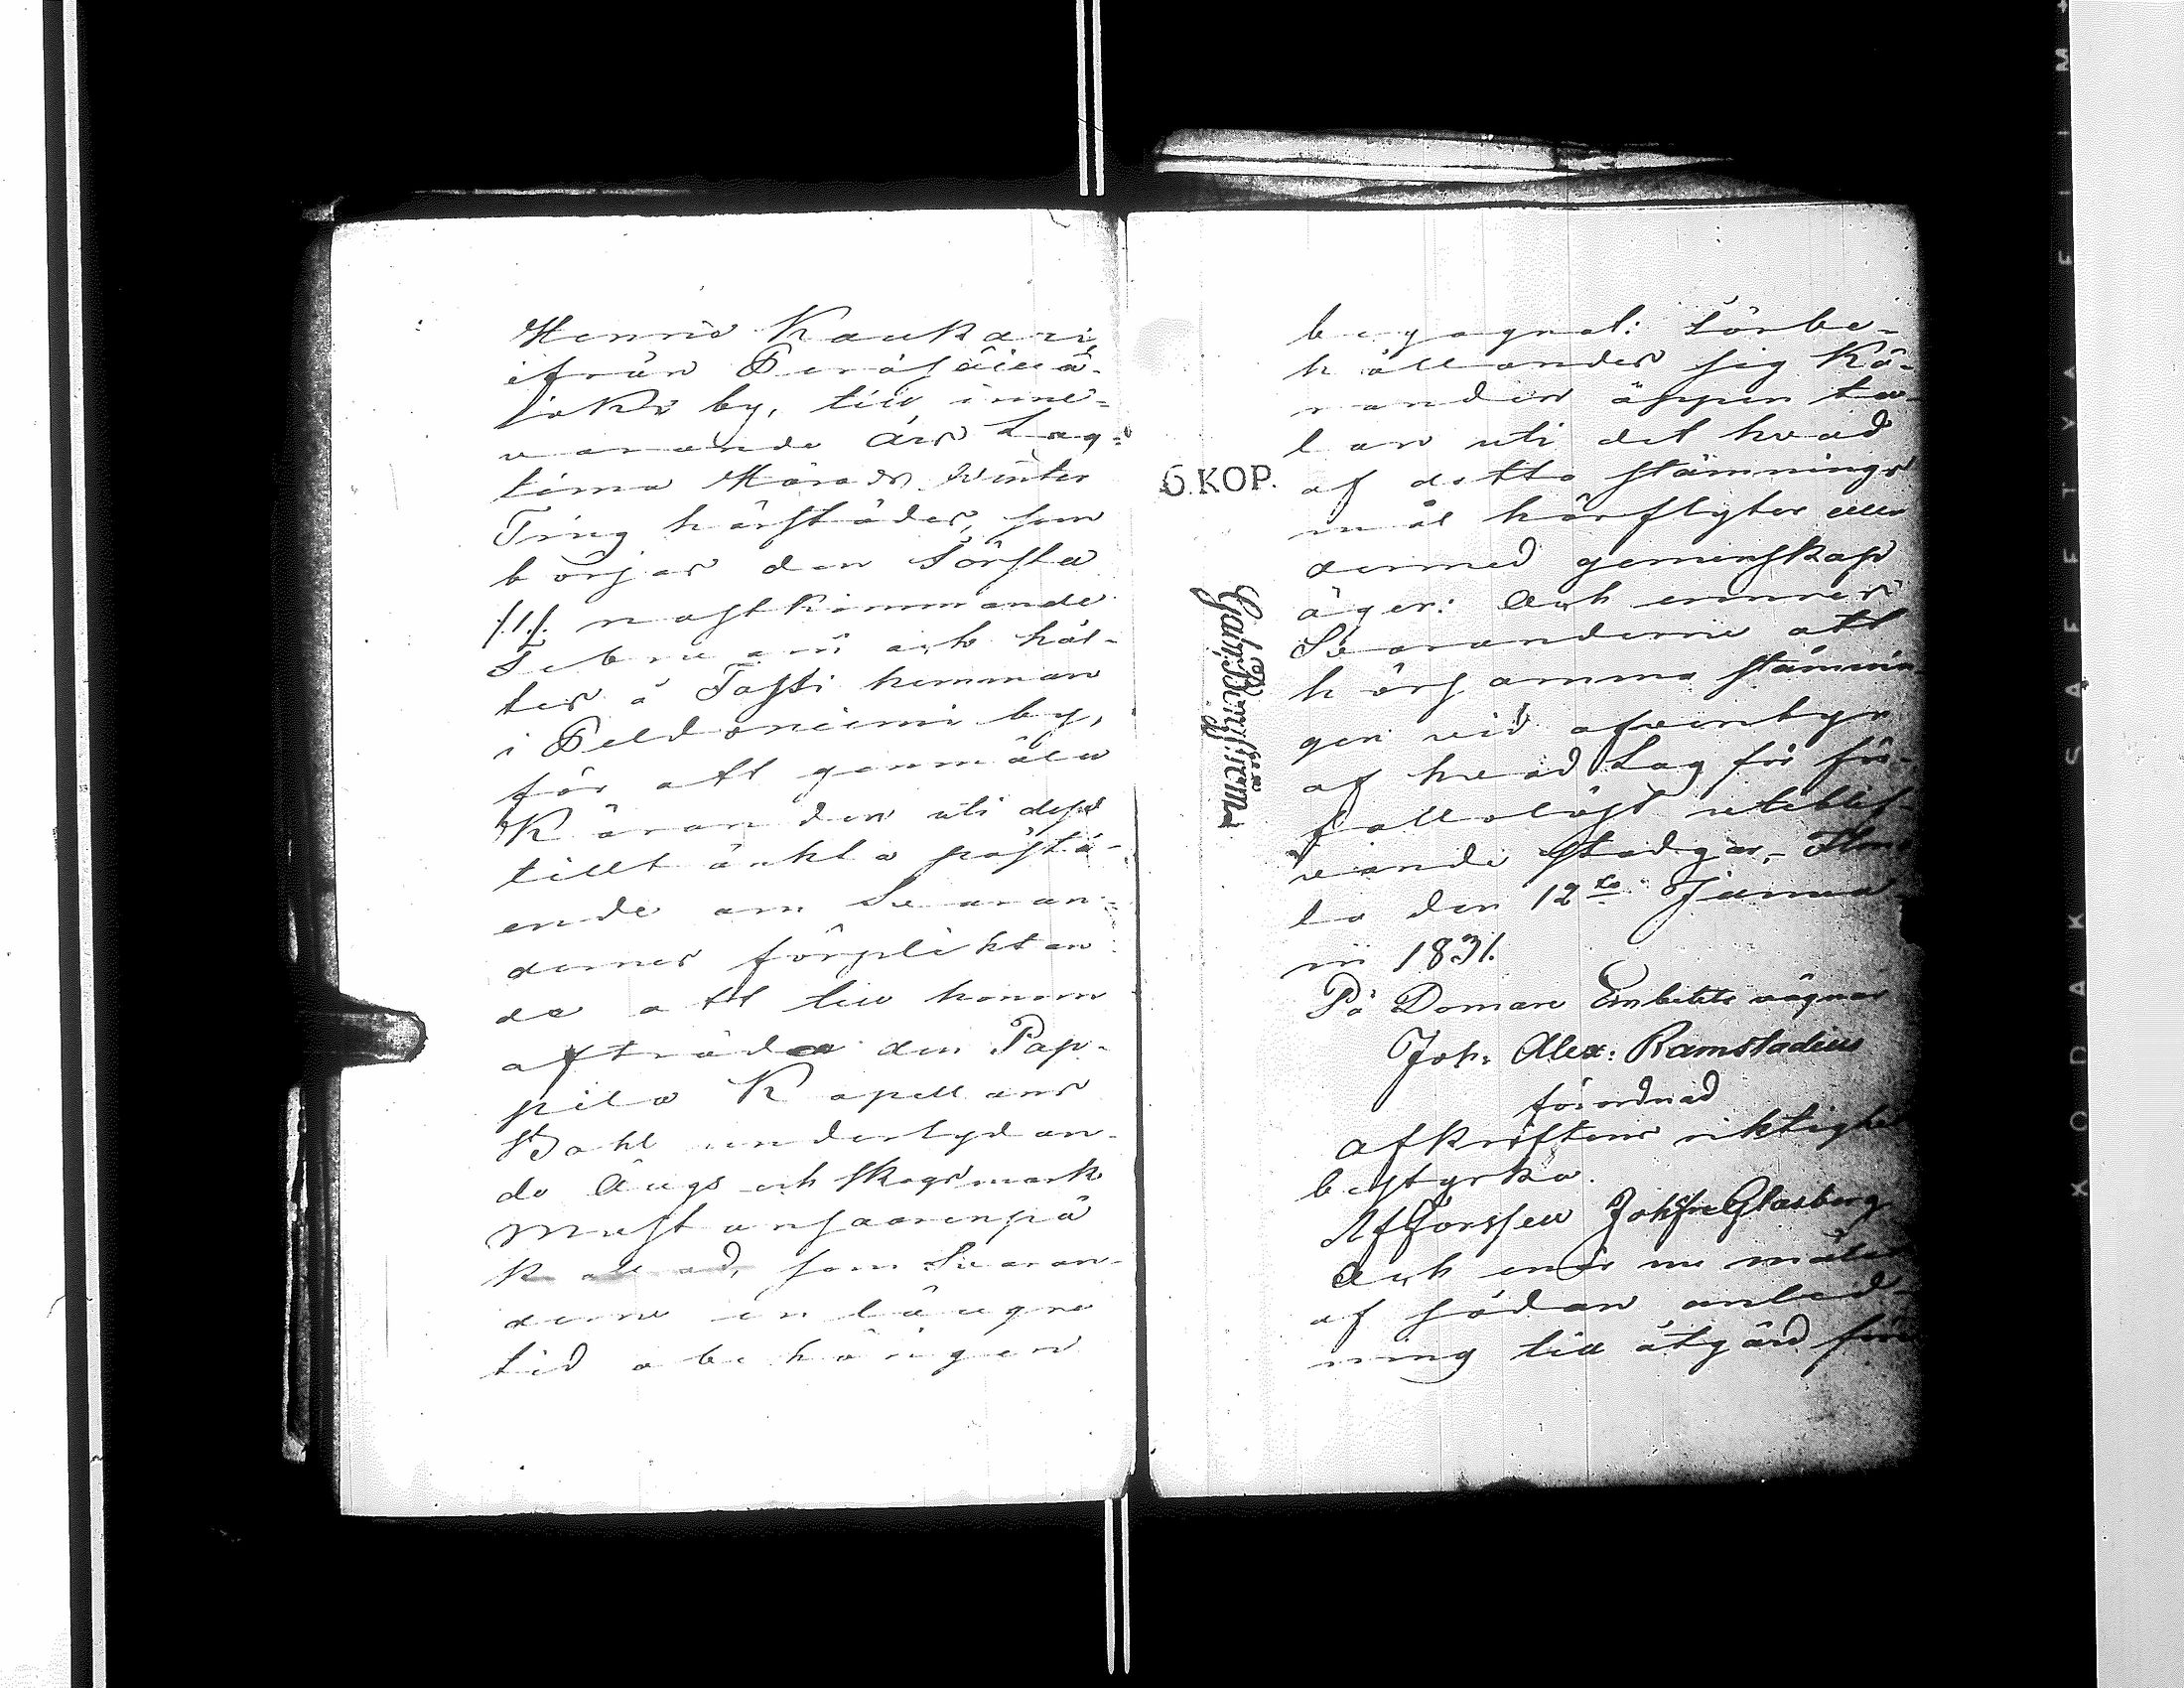 Henric Kaukari
ifrån Peräseinä-
joki by, till inne-
varande Års Lag-
tima Härads Winter
Ting härstädes, som
börjas den Första
/:1:/ nästkommande
Februarii och hål-
les å Tassi hemman
i Peldoniemi by,
för att genmäla
Käranden uti dess
tilltänkta påstå-
ende om Svaran-
dernes förpliktan-
de att till honom
afträda den Pap-
pila Kapellans
Bohl underlydan-
de Ängs och skogsmark
Mustansaarenpä
kallad, som Svaran-
derne en längre
tid obehörigen
begagnat: Förbe-
hållandes sig Kä-
randen öppen ta-
lan uti det hvad
af detta stämnings
mål härflyter eller
dermed gemenskap
äger: Och ernår
Svaranderne att
hörsamma stämnin-
gen vid äfventyr
af hvad Lag för för-
fallolöst uteblif-
vande stadgar,
la den 12te Janua-
rii 1831.
På Domare Embetets vägnar
Joh: Alex: Ramstadius
förordnad
afskriftens riktighet
bestyrka.
Johan Glasberg
Och som nu målet
af sådan anled-
ning till åtgärd före
6.KOP.